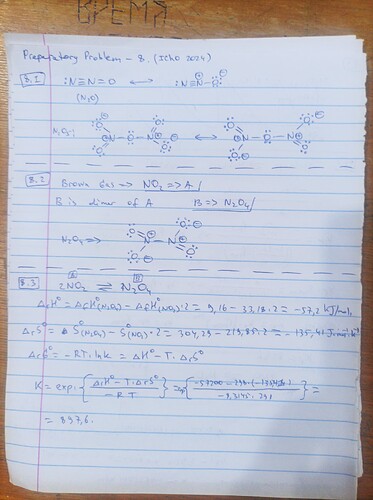 ВРЕМЯ
Preparatory Problem - 8. (IChO 2024)
8.1 :N≡N=O ↔ :N≡N-O:
(N₂O)
N₂O₅:
8.2 Brown Gas => NO₂ => A
B is dimer of A B => N₂O₄
N₂O₄ =>
8.3 A B
2NO₂ ⇌ N₂O₄
ΔrH° = ΔfH°(N₂O₄) - ΔfH°(NO₂)·2 = 9,16 - 33,18·2 = -57,2 kJ/mol
ΔrS° = S°(N₂O₄) - S°(NO₂)·2 = 304,29 - 219,85·2 = -135,41 J·mol⁻¹·K⁻¹
ΔrG° = -RT·lnK = ΔH° - T·ΔrS°
K = exp·{ΔrH° - T·ΔrS° / -RT} =
= 897,6.